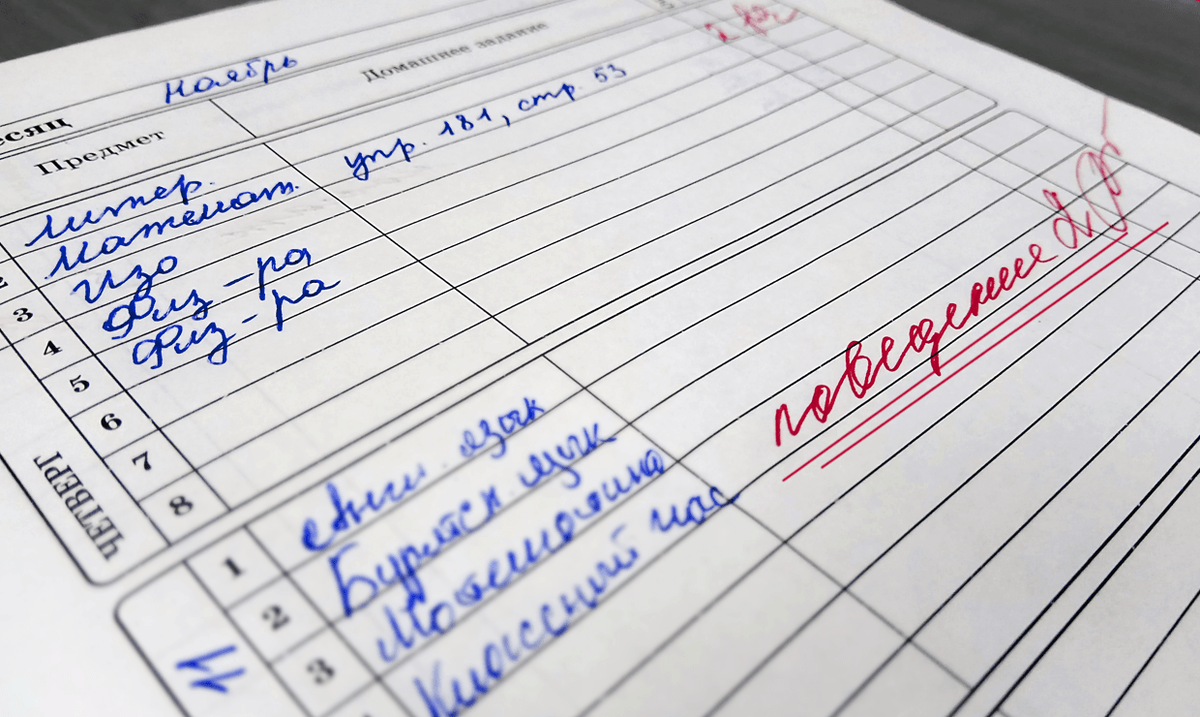 есяц ноябрь
Предмет Домашнее задание
Литер.
Математ. упр. 181, стр. 53
3 Изо
4 Физ-ра
5 Физ-ра
6
7
8
ЧЕТВЕРГ
поведение 2
1 Англ. язык
2 Бурятск. язык
3 Математика
Классный час
11